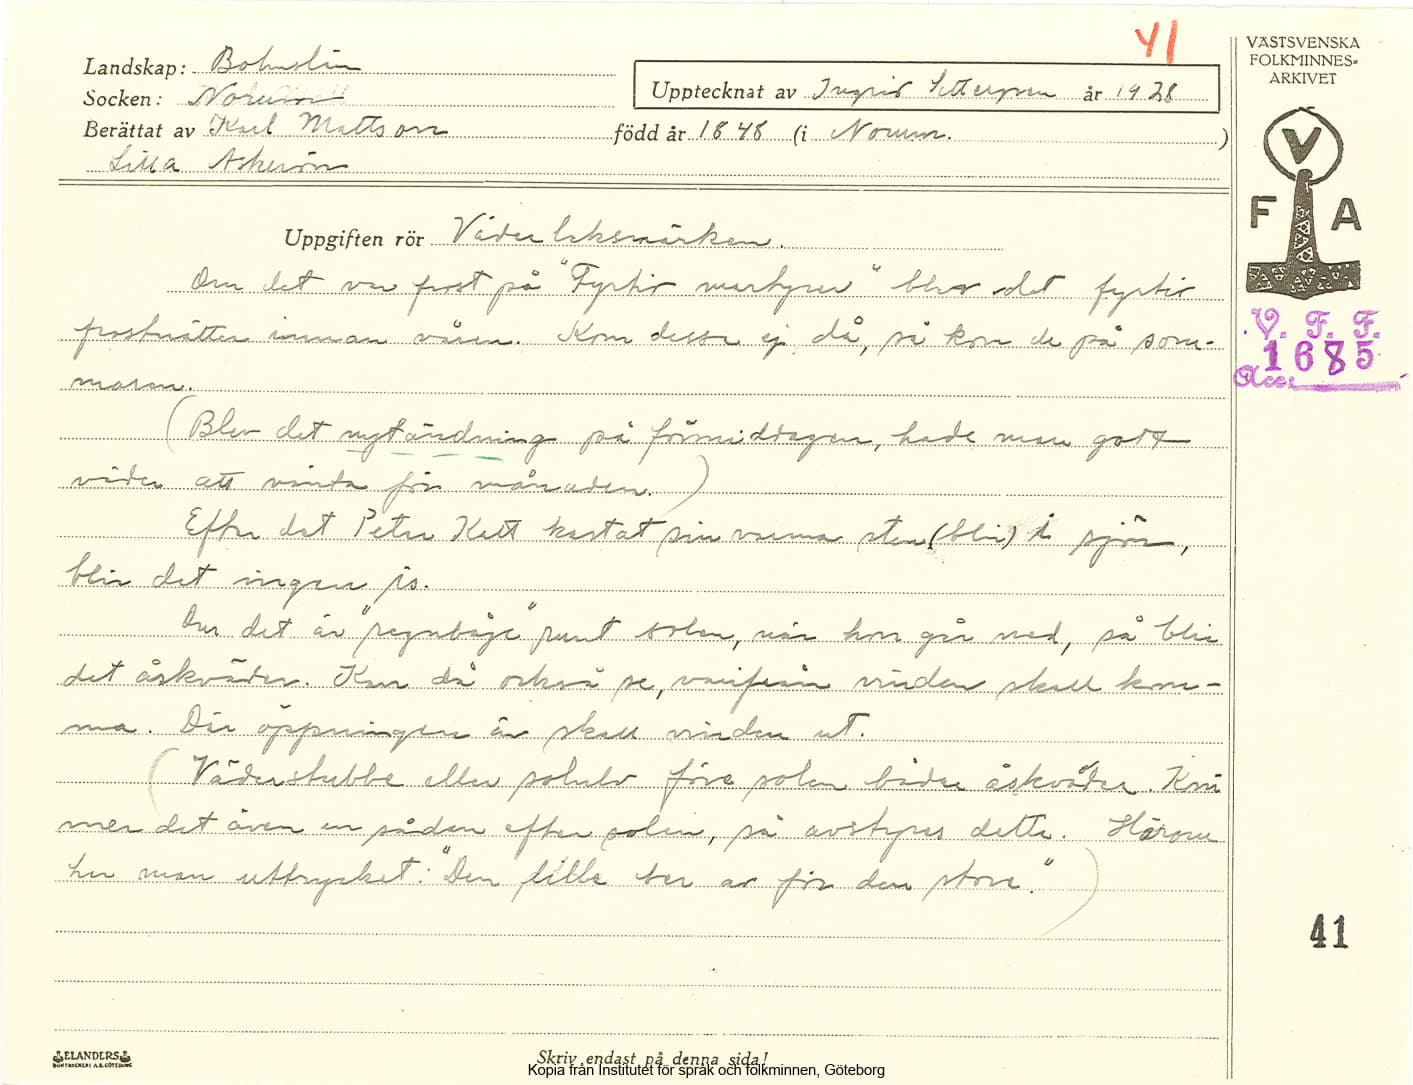 41
Landskap: Bohuslän
Socken: Norum
Upptecknat av Ingrid Settergren år 1928
Berättat av Karl Mattsson född år 1848 (i Norum. )
Lilla Askerön
VÄSTSVENSKA
FOLKMINNES-
ARKIVET
V
F A
V. F. F.
Acc: 1685
Uppgiften rör Väderleksmärken.
Om det var frost på "Fyrtio martyrer" blev det fyrtio
frostnätter innan våren. Kom dessa ej då, så kom de på som-
maren.
(Blev det nytändning på förmiddagen, hade man gott
väder att vänta för månaden.)
Efter det Peter Katt kastat sin varma sten (blir) i sjön,
blir det ingen is.
Om det är "regnbåge" runt solen, när hon går ned, så blir
det åskväder. Kan då också se, varifrån vinden skall kom-
ma. Där öppningen är skall vinden ut.
(Väderstubbe eller solulv före solen bådar åskväder. Kom
mer det även en sådan efter solen, så avstyres detta. Härom
har man uttrycket: "Den lille ber av för den store.")
41
ELANDERS
BOKTRYCKERI A.B. GÖTEBORG
Skriv endast på denna sida!
Kopia från Institutet för språk och folkminnen, Göteborg